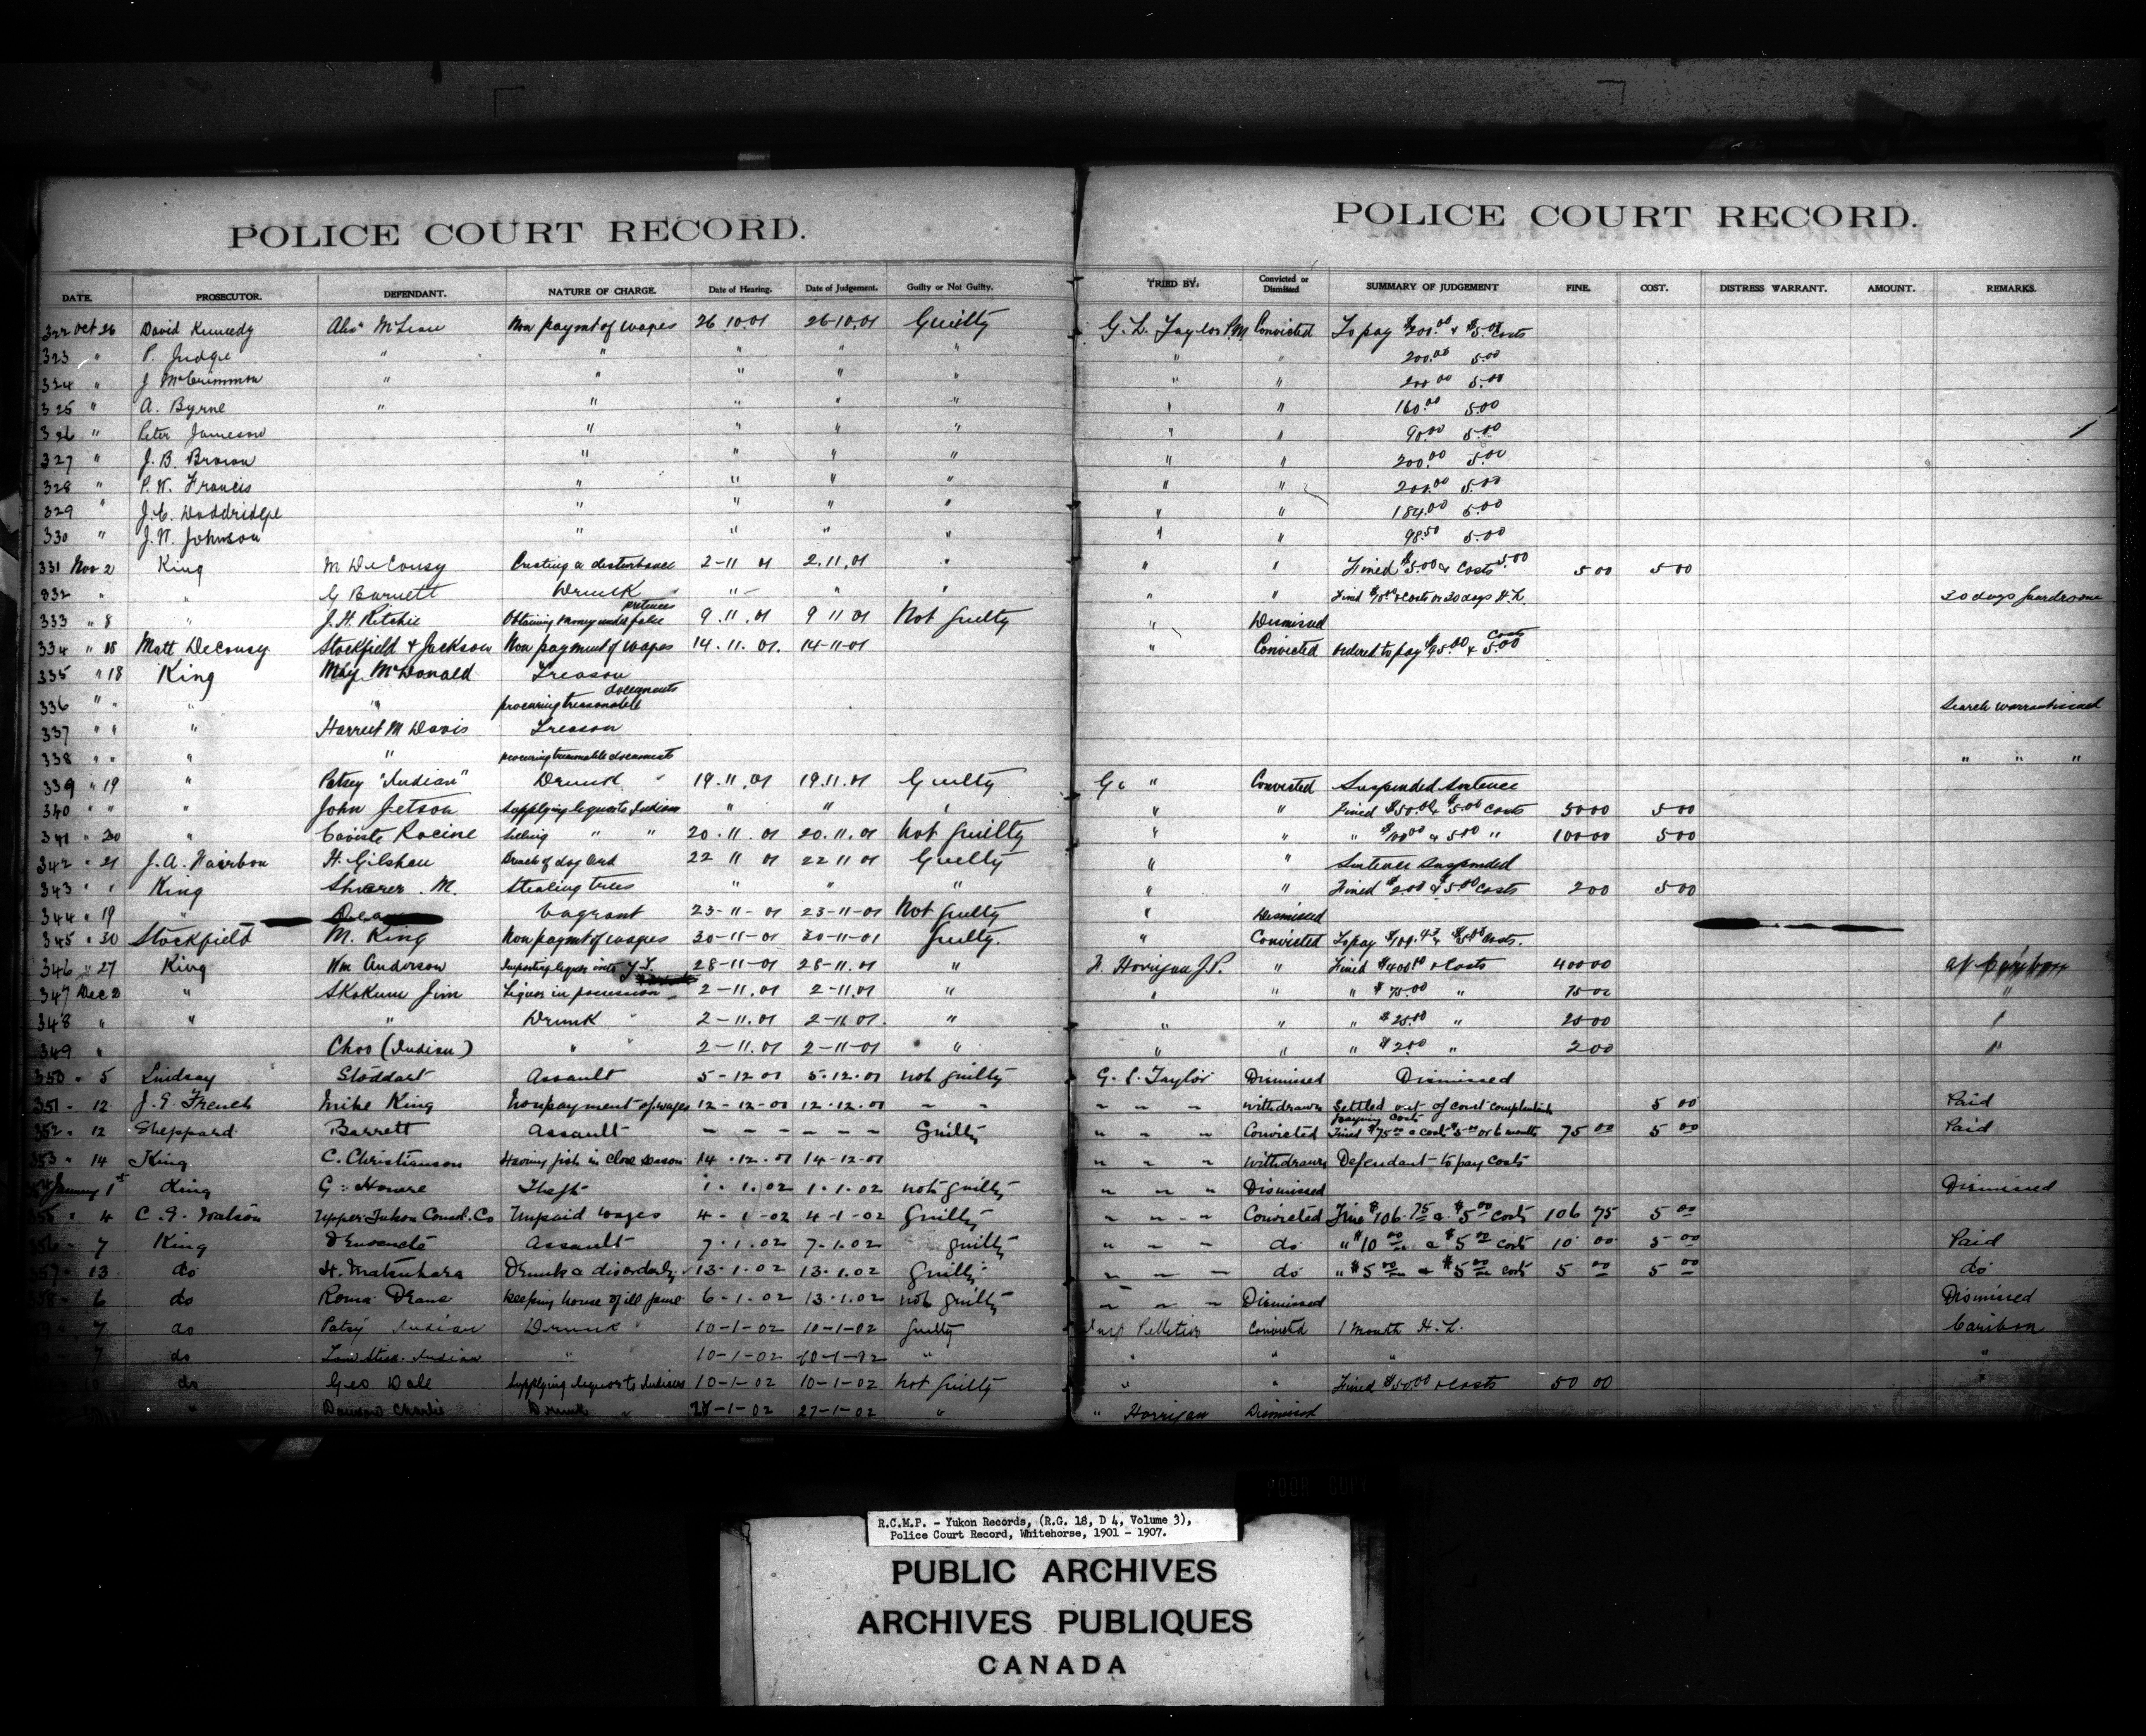 POLICE COURT RECORD.
POLICE COURT RECORD.
DATE. PROSECUTOR. DEFENDANT. NATURE OF CHARGE. Date of Hearing. Date of Judgement. Guilty or Not Guilty. TRIED BY: Convicted or Dismissed SUMMARY OF JUDGEMENT FINE. COST. DISTRESS WARRANT. AMOUNT. REMARKS.
322 Oct 26 David Kennedy Alex McLean Non paymt of wages 26.10.01 26-10.01 Guilty G. L. Taylor P.M. Convicted To pay $200.00 & $5.00 Costs
323 " P. Judge " " " " " " " 200.00 5.00
324 " J McCrimmon " " " " " " " 200.00 5.00
325 " A. Byrne " " " " " " " 160.00 5.00
326 " Peter Jameson " " " " " " 90.00 5.00
327 " J. B. Brown " " " " " " 200.00 5.00
328 " P. W. Francis " " " " " " 200.00 5.00
329 " J. C. Doddridge " " " " " " 184.00 5.00
330 " J. W. Johnson " " " " " " 98.50 5.00
331 Nov 2 King M DeCousy Creating a disturbance 2-11 01 2.11.01 " " " Fined $5.00 & Costs 5.00 5 00 5 00
332 " " G Burnett Drunk " " " " " Fined $10.00 & Costs or 30 days H.L. 30 days guardroom
333 " 8 " J. H. Ritchie Obtaining money under false pretences 9.11.01 9 11 01 Not Guilty " Dismissed
334 " 18 Matt DeCousy Stockfield & Jackson Non payment of wages 14.11.01. 14-11-01 " Convicted Ordered to pay $95.00 & 5.00 Costs
335 " 18 King May McDonald Treason
336 " " " " procuring treasonable documents Search warrant issued
337 " " " Harriet M Davis Treason
338 " " " " procuring treasonable documents " " "
339 " 19 " Patsey "Indian" Drunk 19.11.01 19.11.01 Guilty " Convicted Suspended Sentence
340 " " " John Jetson Supplying liquor to Indian " " " " " Fined $50.00 & $5.00 Costs 50 00 5 00
341 " 20 " Racine Selling " " 20.11.01 20.11.01 Not Guilty " " " $100.00 & 5.00 " 100 00 5 00
342 " 21 J. A. Fairbon H. Gilshen Breach of dog Ord 22 11 01 22 11 01 Guilty " " Sentence Suspended
343 " " King Shearer. M. Stealing trees " " " " " Fined $2.00 & $5.00 Costs 2 00 5 00
344 " 19 " Vagrant 23-11-01 23-11-01 Not Guilty " Dismissed
345 " 30 Stockfield M. King Non paymt of wages 30-11-01 30-11-01 Guilty. " Convicted To pay $109.45 & $5.00 Costs.
346 " 27 King Wm Anderson Importing liquor into Y.T. 28-11-01 28-11.01 " F. Horrigan J.P. " Fined $400.00 & Costs 400 00 at Caribou
347 Dec 2 " Skokum Jim Liquor in possession 2-11.01 2-11.01 " " " " $75.00 " 75 00 "
348 " " " Drunk 2-11.01 2-11 01. " " " " $25.00 " 25 00 "
349 " Choo (Indian) " 2-11.01 2-11-01 " " " " $2.00 " 2 00 "
350 " 5 Lindsay Stoddart Assault 5-12 01 5.12.01 not guilty G. L. Taylor Dismissed Dismissed
351 " 12 J. E. French Mike King Nonpayment of wages 12-12-01 12.12.01 " " " " " withdrawn Settled out of court complainant paying costs 5 00 Paid
352 " 12 Sheppard Barrett Assault - - - - - - Guilty " " " Convicted Fined $75.00 & costs $5.00 or 6 months 75 00 5 00 Paid
353 " 14 King C. Christianson Having fish in close season 14.12.01 14-12-01 " " " withdrawn Defendant to pay costs
January 1st King G. Howere Theft 1.1.02 1.1.02 not guilty " " " Dismissed Dismissed
355 " 4 C. E. Watson Upper Yukon Consol. Co Unpaid wages 4-1-02 4-1-02 Guilty " " " Convicted Fine $106.75 & $5.00 costs 106 75 5 00
356 " 7 King Assault 7.1.02 7-1.02 guilty " " " do " $10 00 & $5 00 costs 10 00 5 00 Paid
357 " 13 do H. Matsuhara Drunk & disorderly 13.1.02 13.1.02 Guilty " " " do " $5 00 & $5 00 costs 5 00 5 00 do
358 " 6 do Roma Deane keeping house of ill fame 6-1.02 13.1.02 not guilty " " " Dismissed Dismissed
" 7 do Patsy Indian Drunk 10-1-02 10-1-02 Guilty Insp Pelletier Convicted 1 Month H. L. Caribou
7 do Indian " 10-1-02 10-1-02 " " " " "
10 do Geo Dale Supplying liquor to Indians 10-1-02 10-1-02 Not Guilty " " Fined $50.00 & Costs 50 00 "
" Dawson Charlie Drunk 27-1-02 27-1-02 " " Horrigan Dismissed
R.C.M.P. - Yukon Records, (R.G. 18, D 4, Volume 3),
Police Court Record, Whitehorse, 1901 - 1907.
PUBLIC ARCHIVES
ARCHIVES PUBLIQUES
CANADA